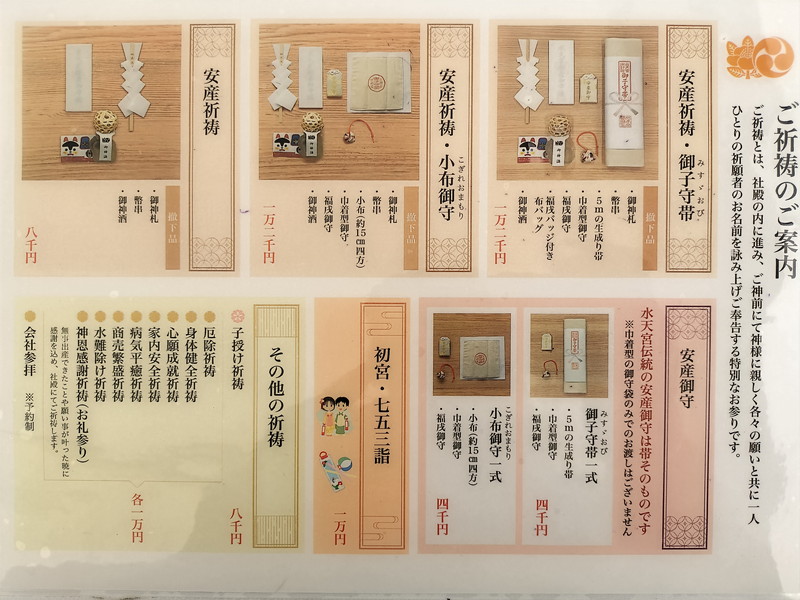 ご祈祷のご案内
ご祈祷とは、社殿の内に進み、ご神前にて神様に親しく各々の願いと共に一人
ひとりの祈願者のお名前を詠み上げご奉告する特別なお参りです。
安産祈祷・御子守帯
みすゞおび
撤下品
・御神札
・幣串
・5mの生成り帯
・巾着型御守
・福戌御守
・福戌バッジ付き
布バッグ
・御神酒
一万二千円
安産祈祷・小布御守
こぎれおまもり
撤下品
・御神札
・幣串
・小布(約15㎝四方)
・巾着型御守
・福戌御守
・御神酒
一万二千円
安産祈祷
撤下品
・御神札
・幣串
・御神酒
八千円
安産御守
水天宮伝統の安産御守は帯そのものです
※巾着型の御守袋のみでのお渡しはございません
みすゞおび
御子守帯一式
・5mの生成り帯
・巾着型御守
・福戌御守
四千円
こぎれおまもり
小布御守一式
・小布(約15㎝四方)
・巾着型御守
・福戌御守
四千円
初宮・七五三詣
一万円
その他の祈祷
子授け祈祷
八千円
厄除祈祷
身体健全祈祷
心願成就祈祷
家内安全祈祷
病気平癒祈祷
商売繁盛祈祷
水難除け祈祷
神恩感謝祈祷(お礼参り)
無事出産できたことや願い事が叶った暁に
感謝を込め、社殿にてご祈祷します。
各一万円
会社参拝 ※予約制